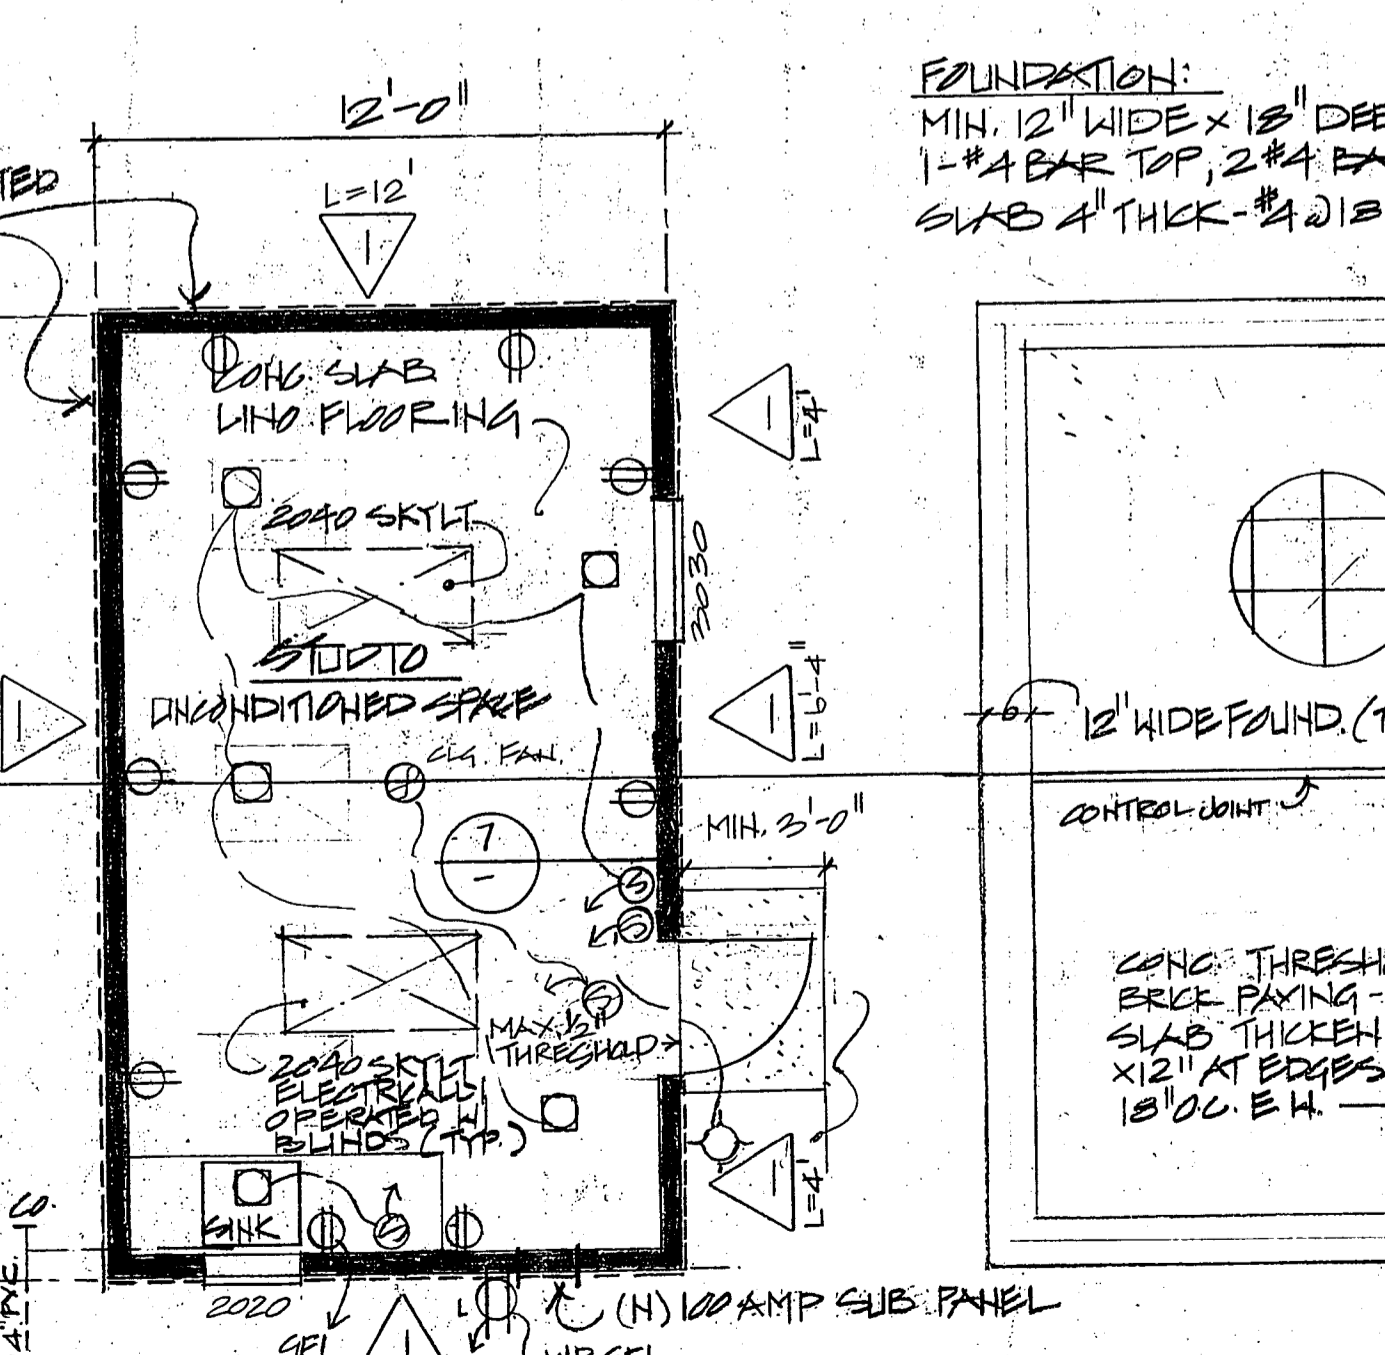 12'-0"
FOUNDATION:
MIN. 12" WIDE x 18" DEE
1-#4 BAR TOP, 2 #4 BA
SLAB 4" THICK - #4 @ 18
TED
L=12'
1
CONC. SLAB
LINO FLOORING
1
L=4'
2040 SKYLT
3030
STUDIO
UNCONDITIONED SPACE
1
1
L=6'-4"
6
12" WIDE FOUND. (T
CLG. FAN.
CONTROL JOINT
MIN. 3'-0"
7
-
S
S
S
CONC. THRESH
BRICK PAVING -
SLAB THICKEN
x12" AT EDGES
18" O.C. E.W.
MAX. 1/2"
THRESHOLD
2040 SKYLT
ELECTRICALLY
OPERATED W/
BLINDS (TYP.)
1
L=4'
SINK
S
CO.
4" PVC.
2020
(N) 100 AMP SUB PANEL
GFI
1
WP GFI